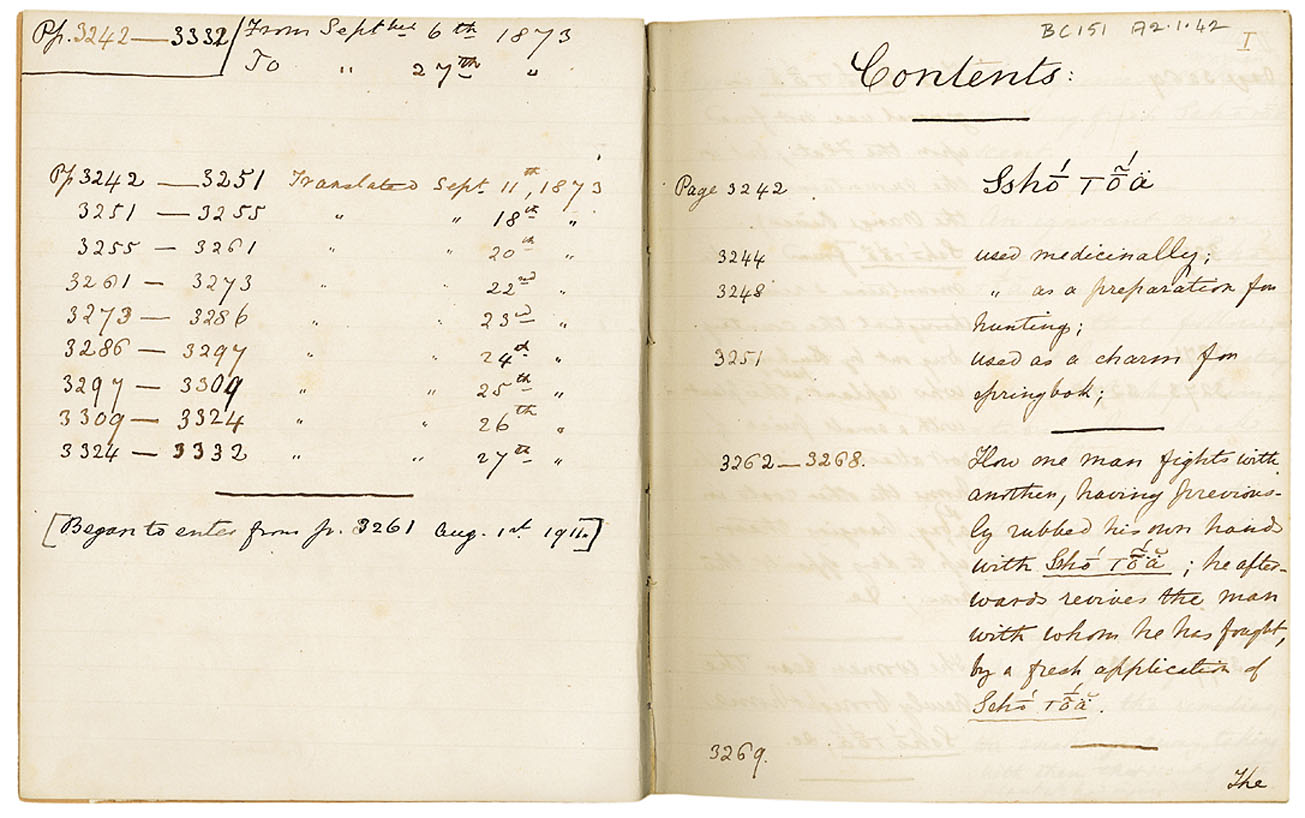 Pp. 3242 — 3332 / From Septber 6th 1873
To " 27th "
Pp 3242 — 3251 Translated Sept. 11th, 1873
3251 — 3255 " " 18th "
3255 — 3261 " " 20th "
3261 — 3273 " " 22nd "
3273 — 3286 " " 23rd "
3286 — 3297 " " 24th "
3297 — 3309 " " 25th "
3309 — 3324 " " 26th "
3324 — 3332 " " 27th "
[Began to enter from p. 3261 Aug. 1st 1911.]
BC151 A2.1.42
I
Contents:
Page 3242 Sshó̄ ⊤ȭ́ä
3244 used medicinally;
3248 " as a preparation for
hunting;
3251 used as a charm for
springbok;
3262 — 3268. How one man fights with
another, having previous-
ly rubbed his own hands
with Sshó̄ ⊤ȭ́ä; he after-
wards revives the man
with whom he has fought,
by a fresh application of
Sshó̄ ⊤ȭ́ä.
3269.
The